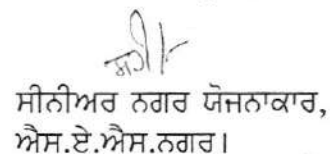 ਸਹੀ/-
ਸੀਨੀਅਰ ਨਗਰ ਯੋਜਨਾਕਾਰ,
ਐਸ.ਏ.ਐਸ.ਨਗਰ।